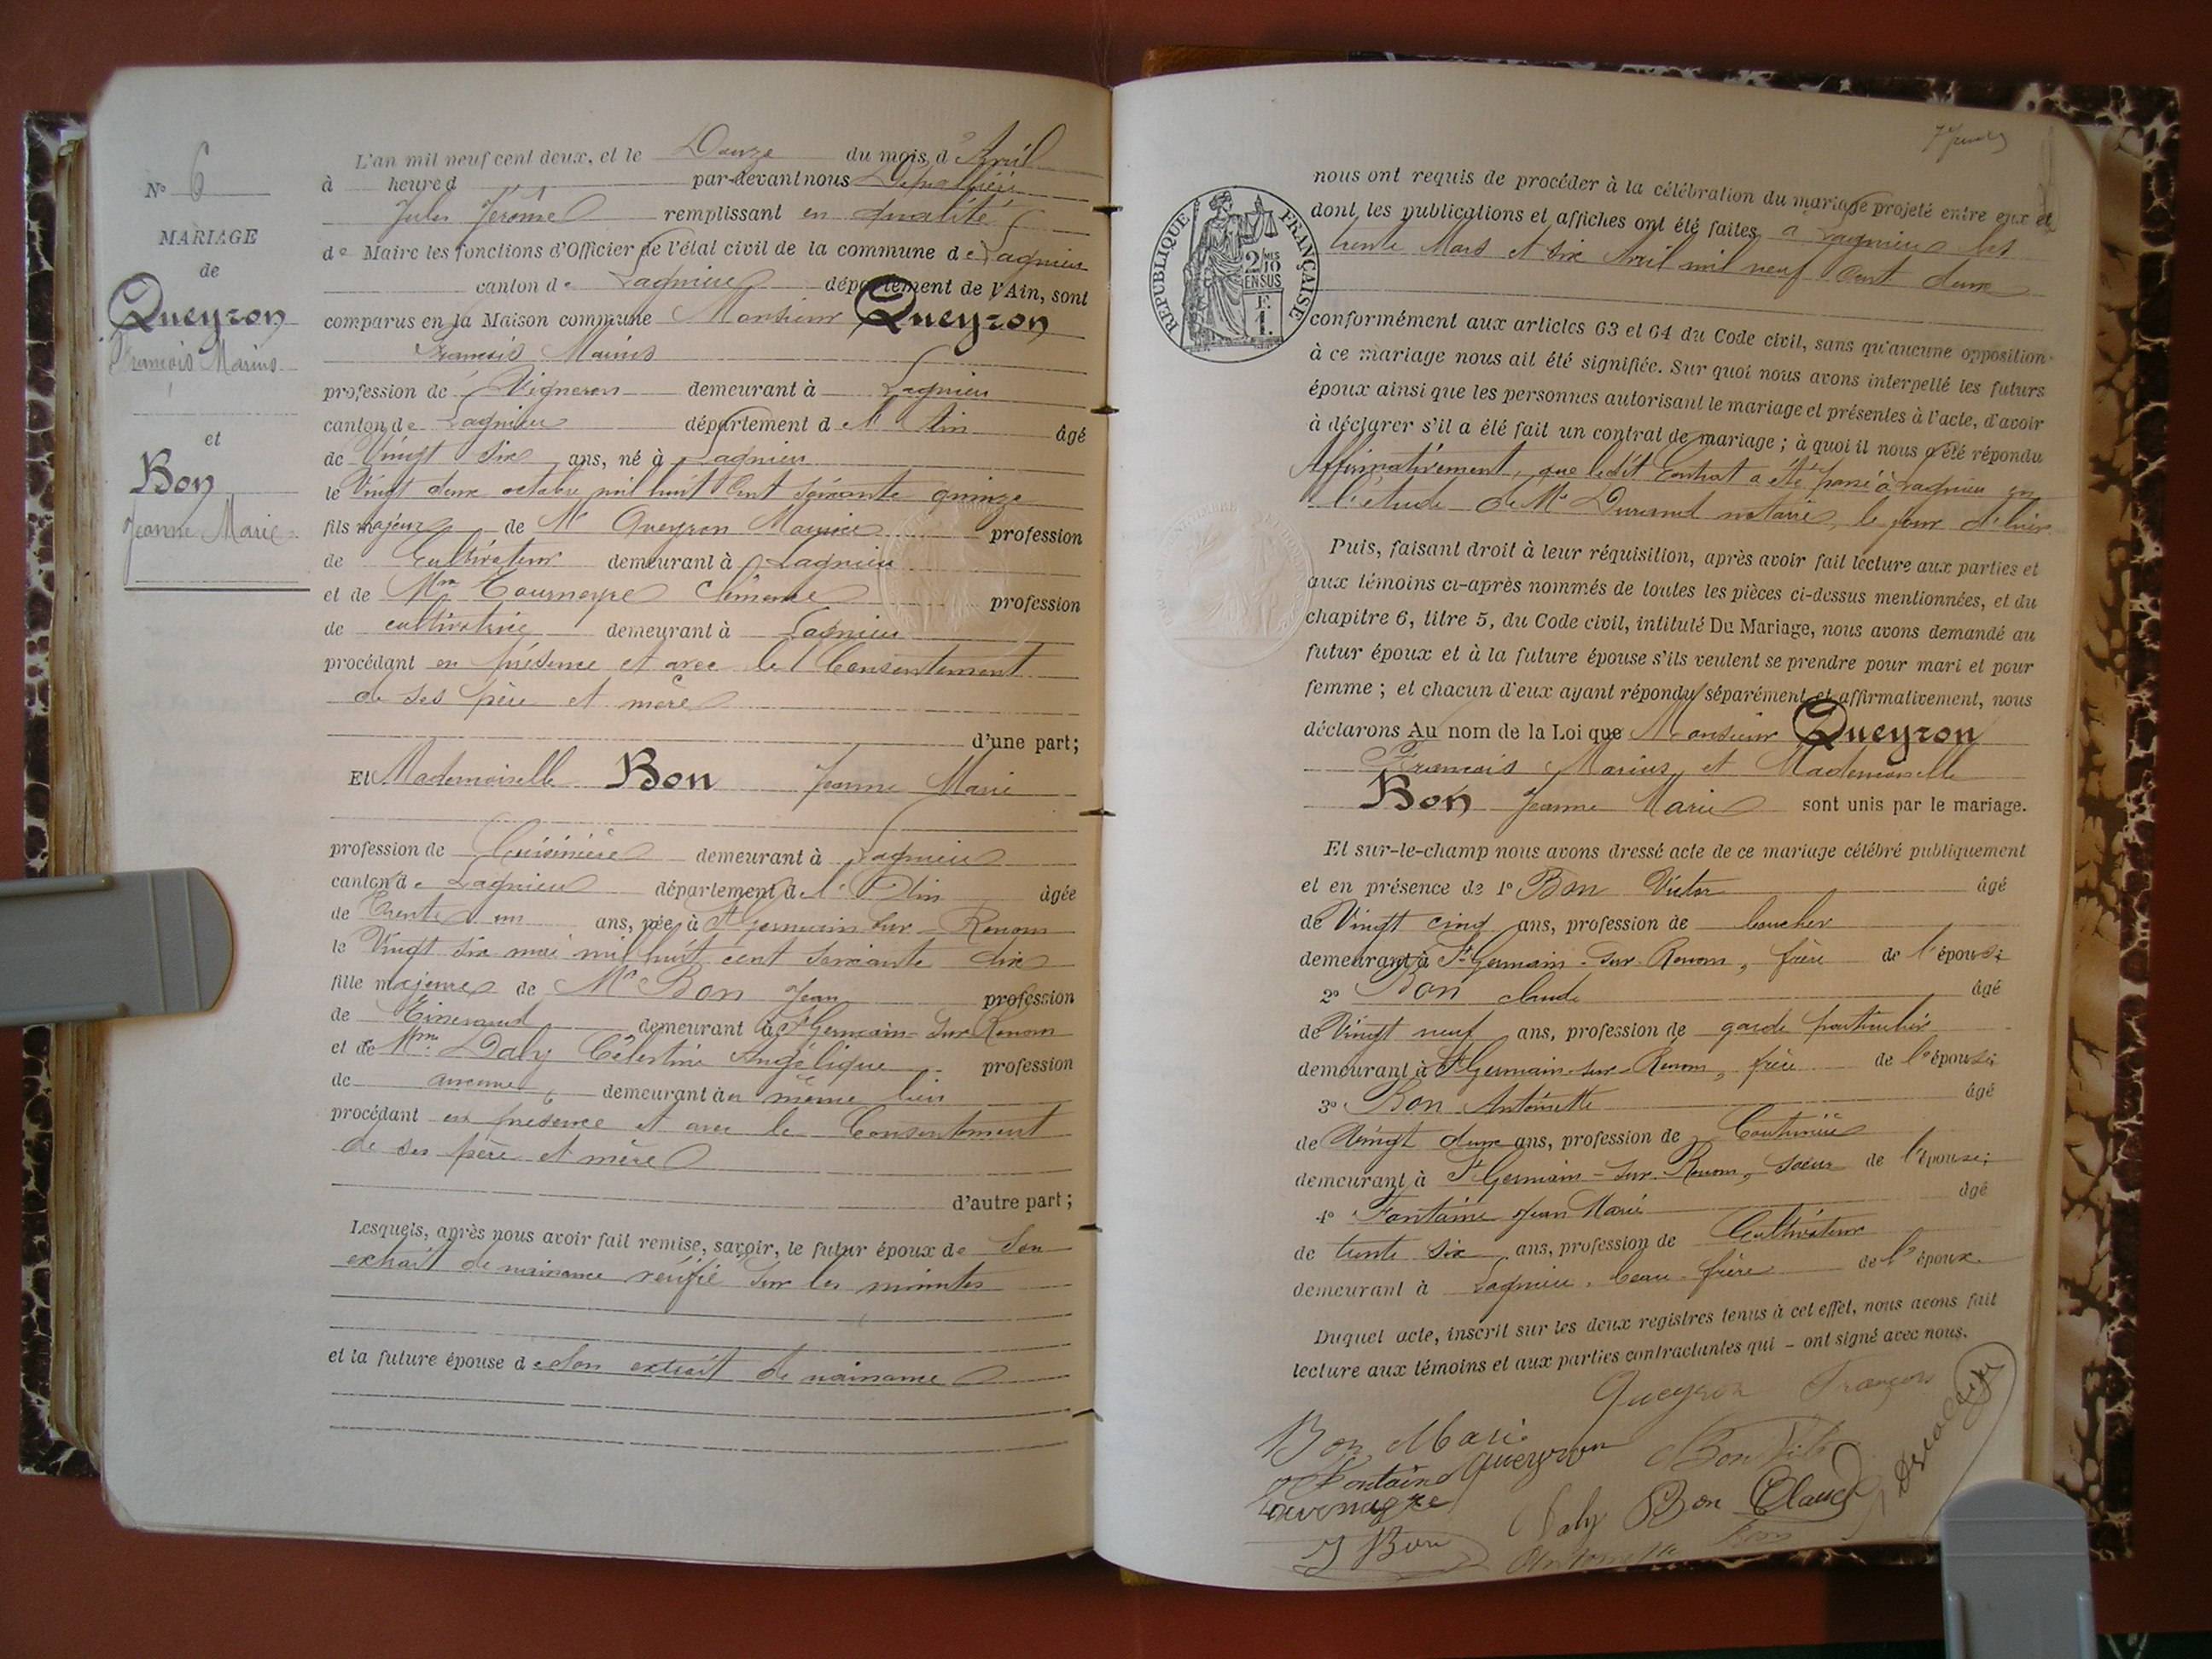 N° 6
MARIAGE
de
Queyron
François Marius
et
Bon
Jeanne Marie
L'an mil neuf cent deux, et le Douze du mois d'Avril
à heure d par-devant nous
Jules Jérôme remplissant en qualité
de Maire les fonctions d'Officier de l'état civil de la commune de Lagnieu
canton de Lagnieu département de l'Ain, sont
comparus en la Maison commune Monsieur Queyron
François Marius
profession de Vigneron demeurant à Lagnieu
canton de Lagnieu département de l'Ain âgé
de Vingt six ans, né à Lagnieu
le Vingt deux octobre mil huit cent soixante quinze
fils majeur de Mr Queyron Maurice profession
de Cultivateur demeurant à Lagnieu
et de Mme profession
de cultivatrice demeurant à Lagnieu
procédant en présence et avec le Consentement
de ses père et mère
d'une part;
Et Mademoiselle Bon Jeanne Marie
profession de Cuisinière demeurant à Lagnieu
canton de Lagnieu département de l'Ain âgée
de Trente un ans, née à St Germain sur Renom
le Vingt six mai mil huit cent soixante dix
fille majeure de Mr Bon Jean profession
de demeurant à St Germain-sur Renom
et de Mme Daly Célestine Angélique profession
de aucune demeurant au même lieu
procédant en présence et avec le Consentement
de ses père et mère
d'autre part;
Lesquels, après nous avoir fait remise, savoir, le futur époux de Son
extrait de naissance vérifié sur les minutes
et la future épouse de son extrait de naissance
nous ont requis de procéder à la célébration du mariage projeté entre eux et
dont les publications et affiches ont été faites à Lagnieu les
trente Mars et six Avril mil neuf Cent deux
RÉPUBLIQUE FRANÇAISE
2/10
EN SUS
1 F.
conformément aux articles 63 et 64 du Code civil, sans qu'aucune opposition
à ce mariage nous ait été signifiée. Sur quoi nous avons interpellé les futurs
époux ainsi que les personnes autorisant le mariage et présentes à l'acte, d'avoir
à déclarer s'il a été fait un contrat de mariage; à quoi il nous a été répondu
Affirmativement, que ledit Contrat a été passé à Lagnieu en
l'étude de Me Durand notaire, le jour d'hier
Puis, faisant droit à leur réquisition, après avoir fait lecture aux parties et
aux témoins ci-après nommés de toutes les pièces ci-dessus mentionnées, et du
chapitre 6, titre 5, du Code civil, intitulé Du Mariage, nous avons demandé au
futur époux et à la future épouse s'ils veulent se prendre pour mari et pour
femme; et chacun d'eux ayant répondu séparément et affirmativement, nous
déclarons Au nom de la Loi que Monsieur Queyron
François Marius et Mademoiselle
Bon Jeanne Marie sont unis par le mariage.
Et sur-le-champ nous avons dressé acte de ce mariage célébré publiquement
et en présence de 1° Bon Victor âgé
de Vingt cinq ans, profession de boucher
demeurant à St Germain-sur-Renom, frère de l'épouse;
2° Bon Claude âgé
de Vingt neuf ans, profession de garde particulier
demeurant à St Germain-sur-Renom, frère de l'épouse;
3° Bon Antoinette âgé
de Vingt deux ans, profession de Couturière
demeurant à St Germain-sur-Renom, soeur de l'épouse;
4° Fontaine Jean Marie âgé
de trente six ans, profession de Cultivateur
demeurant à Lagnieu, beau-frère de l'époux.
Duquel acte, inscrit sur les deux registres tenus à cet effet, nous avons fait
lecture aux témoins et aux parties contractantes qui - ont signé avec nous.
Queyron François
Bon Marie
Queyron
Fontaine
Daly Bon Claude
J Bon
Antoinette Bon